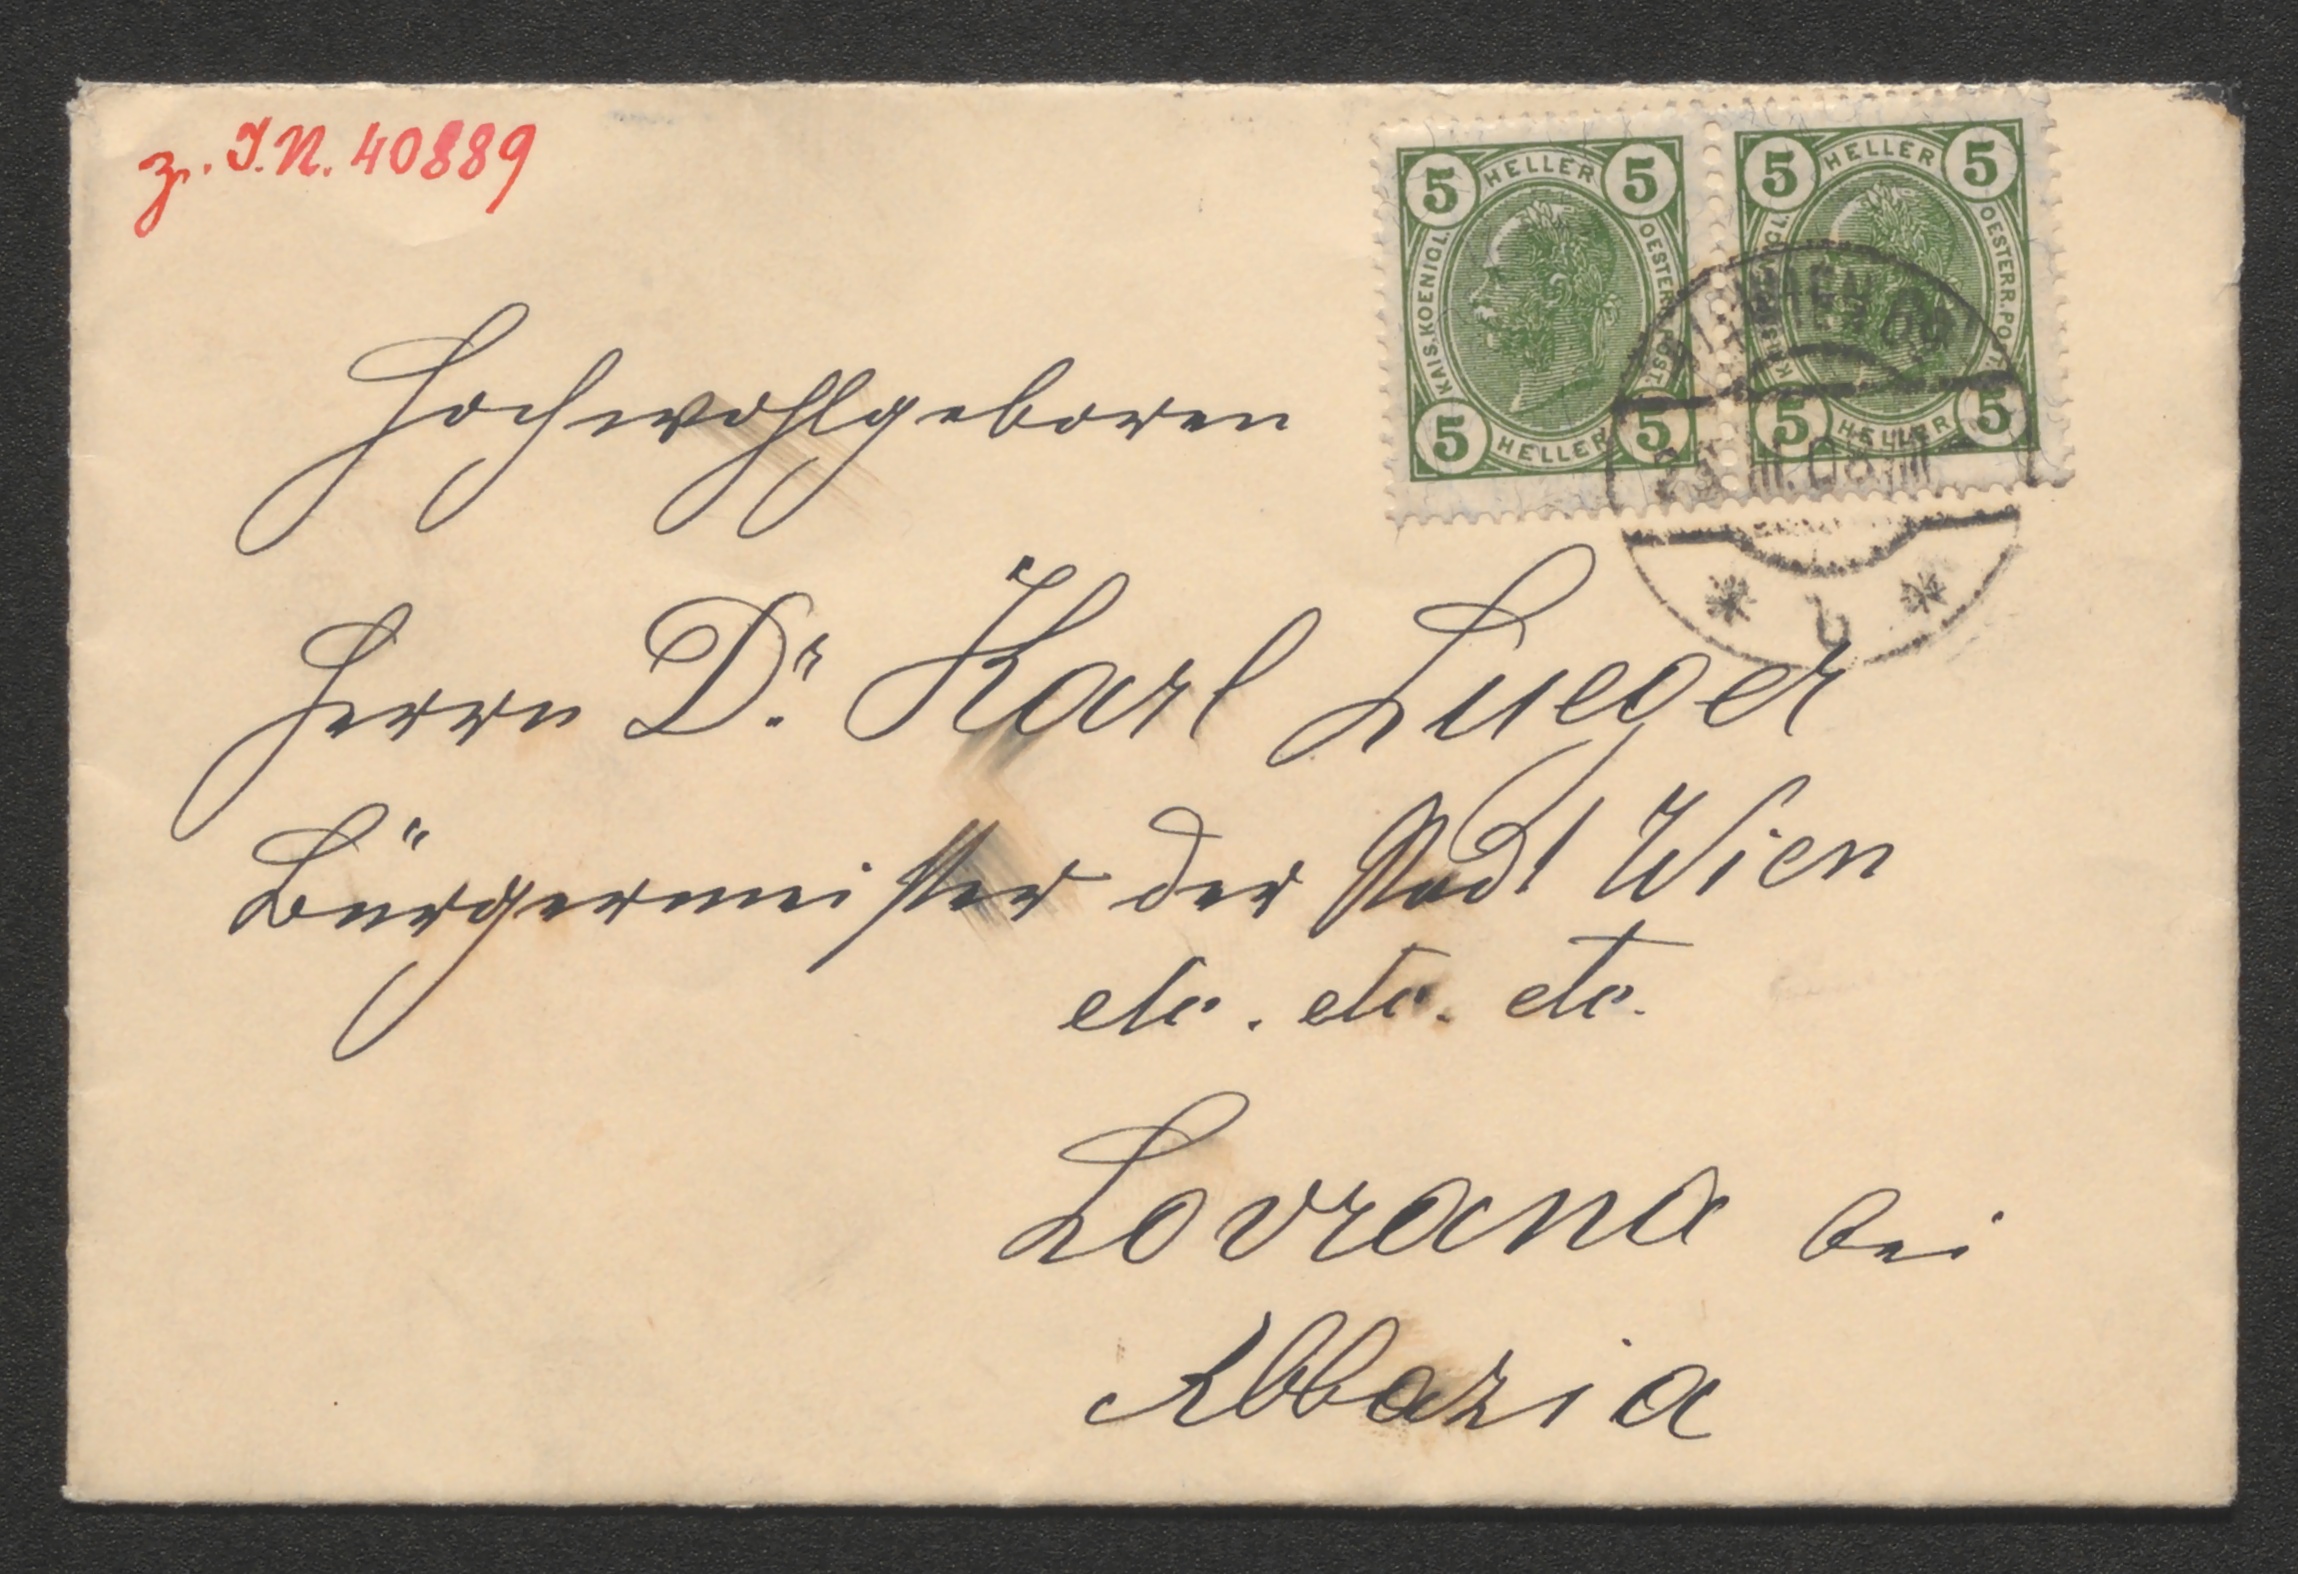 z. I.N. 40889
5 HELLER 5
KAIS. KOENIGL. OESTERR. POST.
5 HELLER 5
5 HELLER 5
OESTERR. PO
5 HELLER 5
III.08
b
Hochwohlgeboren
Herrn Dr. Karl Lueger
Bürgermeister der Stadt Wien
etc. etc. etc.
Lovrana bei
Abbazia